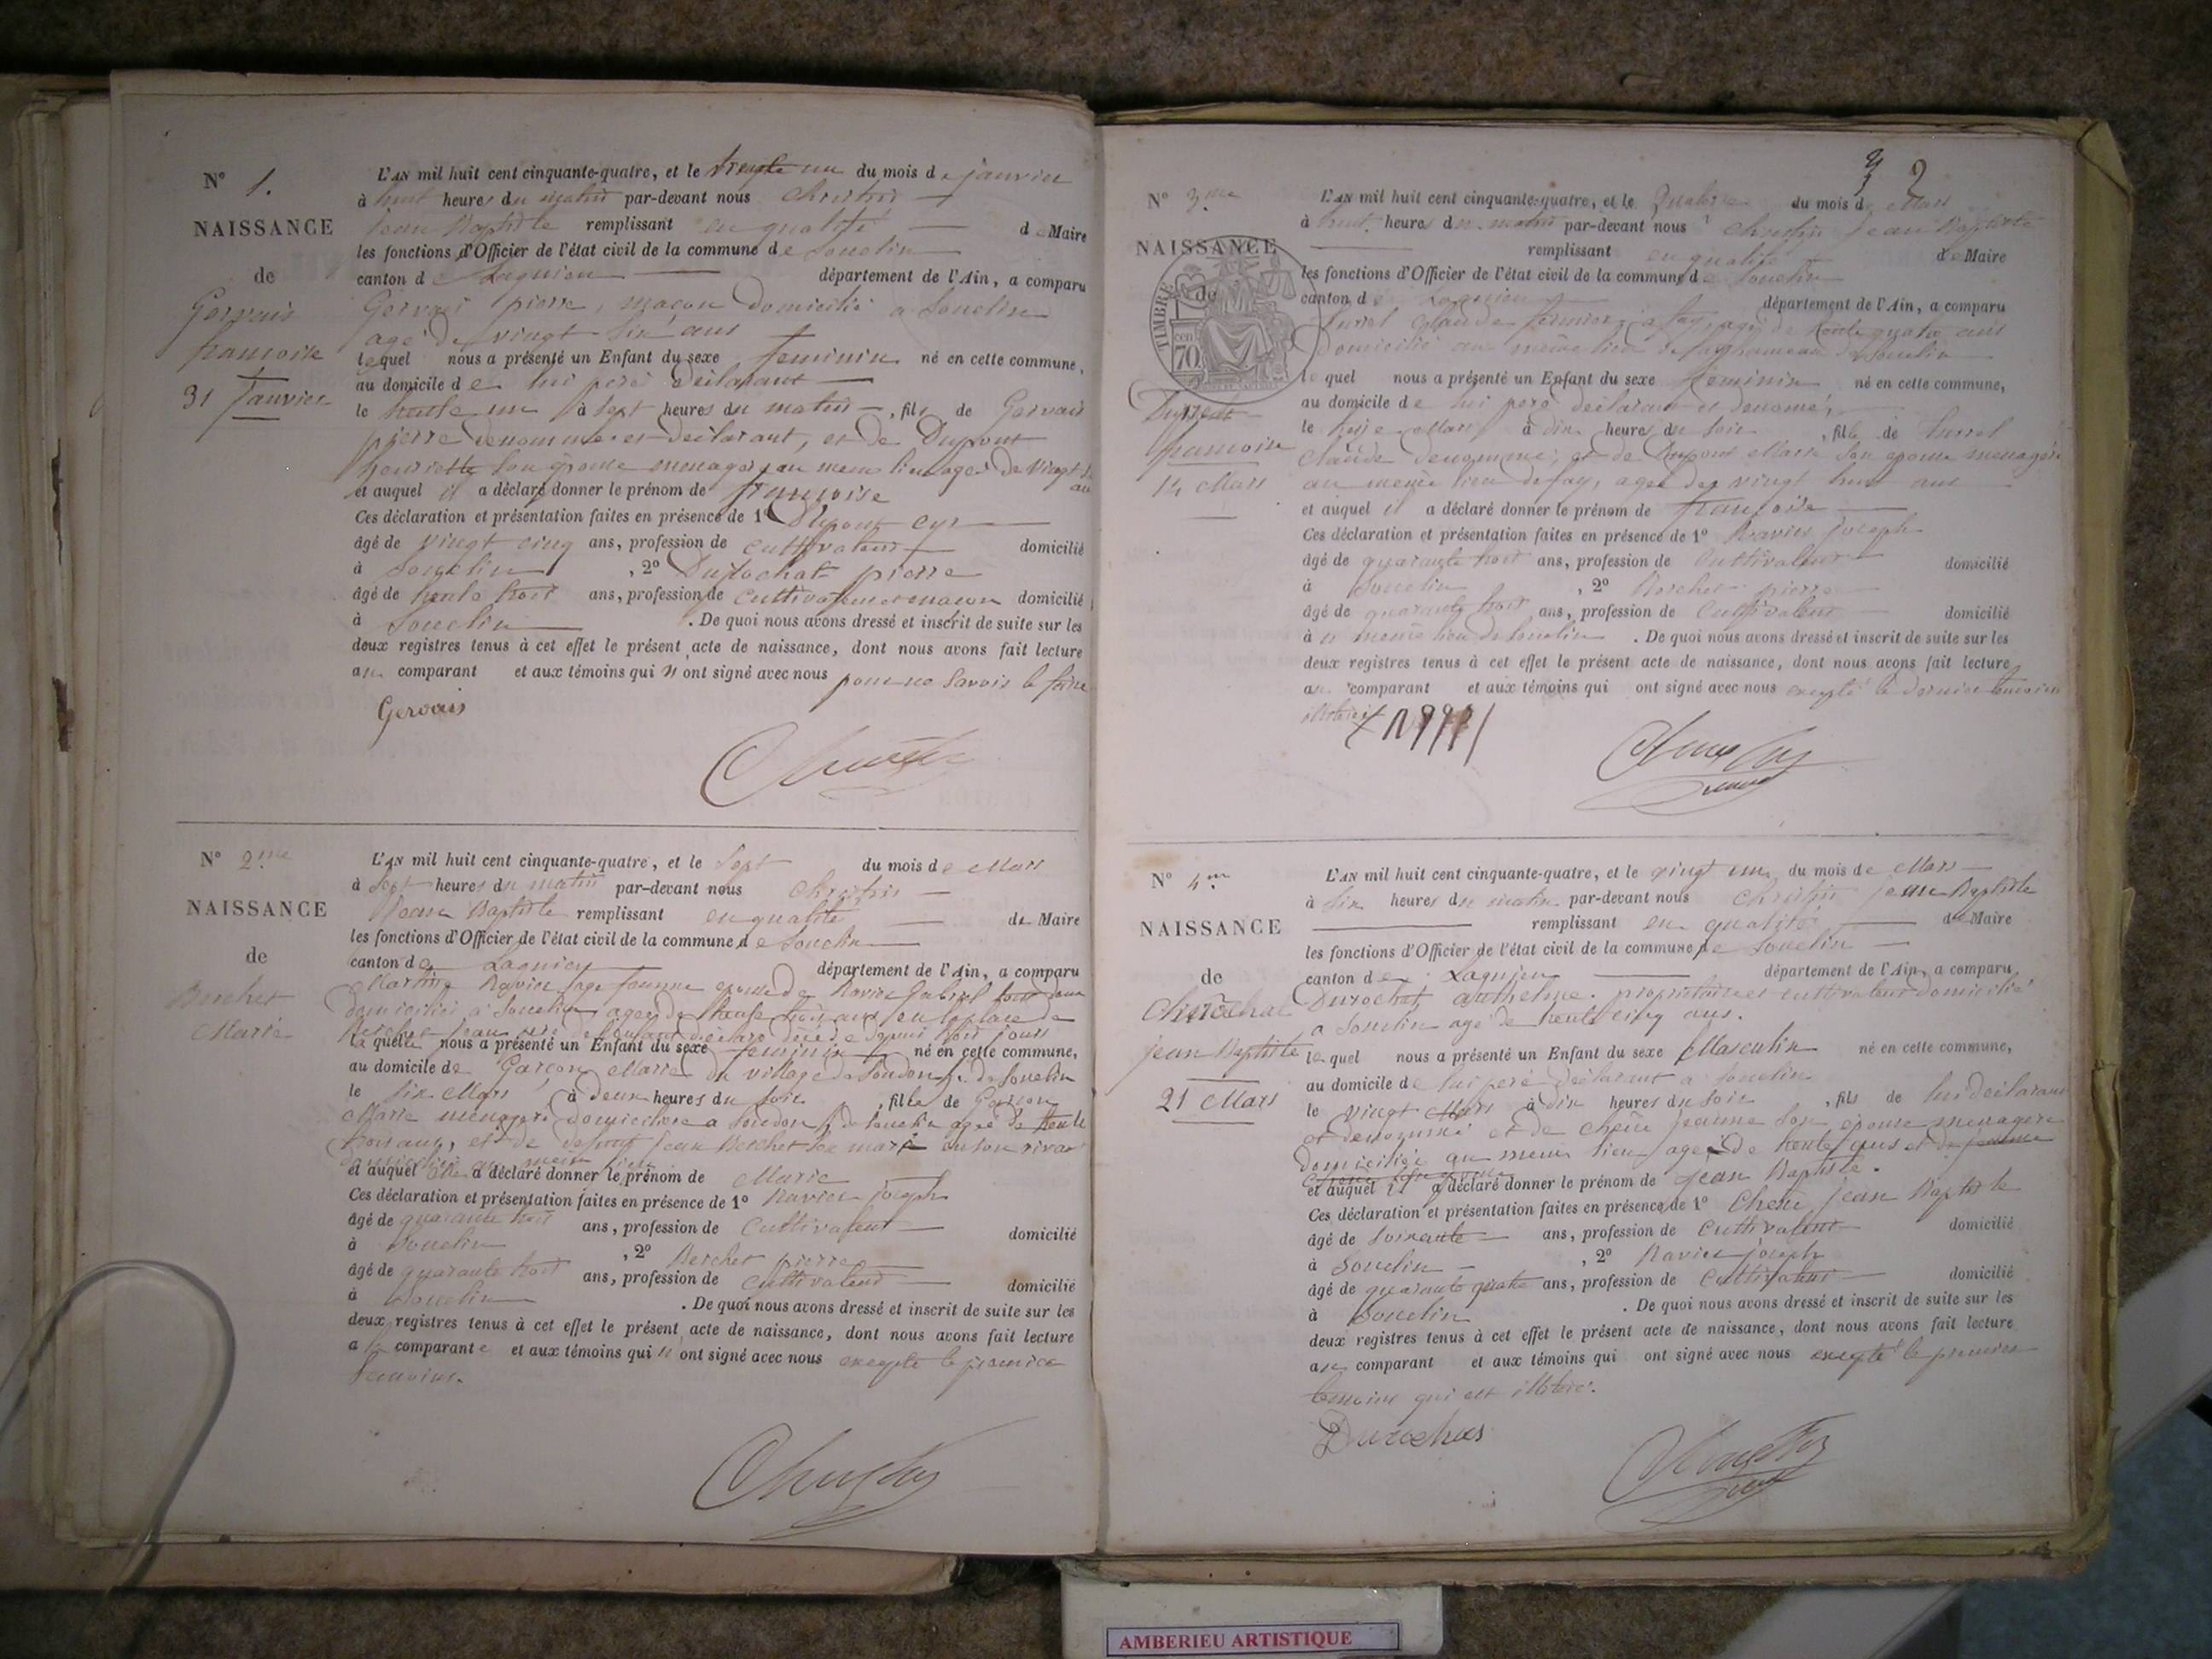 N° 1.
NAISSANCE
de
Gervais
francoise
31 Janvier
L'AN mil huit cent cinquante-quatre, et le trente un du mois de janvier
à huit heures du matin par-devant nous Chrisstin
Jean Baptiste remplissant en qualité de Maire
les fonctions d'Officier de l'état civil de la commune de Souclin
canton de Lagnieu département de l'Ain, a comparu
Gervais pierre, maçon domicilié a Souclin
agé de vingt six ans
lequel nous a présenté un Enfant du sexe feminin né en cette commune,
au domicile de lui pere déclarant
le trente un à sept heures du matin, fils de Gervais
pierre denommé et declarant, et de Dupont
henriette son epouse menagere au meme lieu agée de vingt
et auquel il a déclaré donner le prénom de francoise
Ces déclaration et présentation faites en présence de 1° Dupont Cyr
âgé de vingt cinq ans, profession de cultivateur domicilié
à Souclin, 2° Durochat pierre
âgé de trente trois ans, profession de cultivateur et macon domicilié
à Souclin. De quoi nous avons dressé et inscrit de suite sur les
deux registres tenus à cet effet le présent acte de naissance, dont nous avons fait lecture
au comparant et aux témoins qui n ont signé avec nous pour ne savoir le faire
Gervais
N° 2me
NAISSANCE
de
Berchet
Marie
L'AN mil huit cent cinquante-quatre, et le sept du mois de Mars
à sept heures du matin par-devant nous
Jean Baptiste remplissant en qualité de Maire
les fonctions d'Officier de l'état civil de la commune de Souclin
canton de Lagnieu département de l'Ain, a comparu
Ravier sage femme epouse de Ravier Gabriel
domiciliés à Souclin, agée de trente trois ans en la place de
Berchet Jean pere de l'enfant déclaré décédé depuis trois jours
la quelle nous a présenté un Enfant du sexe feminin né en cette commune,
au domicile de Garçon Marie du village de Soudon h. de Souclin
le six Mars à deux heures du soir, fille de Garçon
Marie menagere domiciliée a Soudon h. de Souclin agée de trente
trois ans, et de defunt Jean Berchet son mari en son vivant
domicilié au meme lieu
et auquel elle a déclaré donner le prénom de Marie
Ces déclaration et présentation faites en présence de 1° Ravier joseph
âgé de quarante trois ans, profession de Cultivateur domicilié
à Souclin, 2° Berchet pierre
âgé de quarante trois ans, profession de cultivateur domicilié
à Souclin. De quoi nous avons dressé et inscrit de suite sur les
deux registres tenus à cet effet le présent acte de naissance, dont nous avons fait lecture
a la comparante et aux témoins qui n ont signé avec nous excepté le premier
temoins.
2
N° 3me
NAISSANCE
de
TIMBRE
70
francoise
14 Mars
L'AN mil huit cent cinquante-quatre, et le Quatorze du mois de Mars
à huit heures du matin par-devant nous Jean Baptiste
remplissant en qualité de Maire
les fonctions d'Officier de l'état civil de la commune de Souclin
canton de Lagnieu département de l'Ain, a comparu
Claude fermier a fay, agé de trente quatre ans
domicilié au même lieu de fay hameau de Souclin
le quel nous a présenté un Enfant du sexe feminin né en cette commune,
au domicile de lui pere declarant et denomé,
le treize Mars à dix heures du soir, fille de
Claude denommé, et de Dupont Marie son epouse menagere
au même lieu de fay, agée de vingt huit ans
et auquel il a déclaré donner le prénom de francoise
Ces déclaration et présentation faites en présence de 1° Ravier joseph
âgé de quarante trois ans, profession de Cultivateur domicilié
à Souclin, 2° Berchet pierre
âgé de quarante trois ans, profession de Cultivateur domicilié
à u même lieu de Souclin. De quoi nous avons dressé et inscrit de suite sur les
deux registres tenus à cet effet le présent acte de naissance, dont nous avons fait lecture
au comparant et aux témoins qui ont signé avec nous excepté le dernier temoin
N° 4me
NAISSANCE
de
jean Baptiste
21 Mars
L'AN mil huit cent cinquante-quatre, et le vingt un du mois de Mars
à six heures du matin par-devant nous jean Baptiste
remplissant en qualité de Maire
les fonctions d'Officier de l'état civil de la commune de Souclin
canton de Lagnieu département de l'Ain, a comparu
Durochat anthelme. propriétaire et cultivateur domicilié
a Souclin agé de trente cinq ans.
le quel nous a présenté un Enfant du sexe Masculin né en cette commune,
au domicile de lui peré déclarant a Souclin
le vingt Mars à dix heures du soir, fils de lui déclarant
et denommé et de jeanne son epouse menagere
domiciliée au meme lieu, agée de trente ans et de jeanne
et auquel il a déclaré donner le prénom de jean Baptiste.
Ces déclaration et présentation faites en présence de 1° jean Baptiste
âgé de soixante ans, profession de Cultivateur domicilié
à Souclin, 2° Ravier joseph
âgé de quarante quatre ans, profession de Cultivateur domicilié
à Souclin. De quoi nous avons dressé et inscrit de suite sur les
deux registres tenus à cet effet le présent acte de naissance, dont nous avons fait lecture
au comparant et aux témoins qui ont signé avec nous excepté le premier
temoins qui est illitéré.
Durochat
AMBERIEU ARTISTIQUE